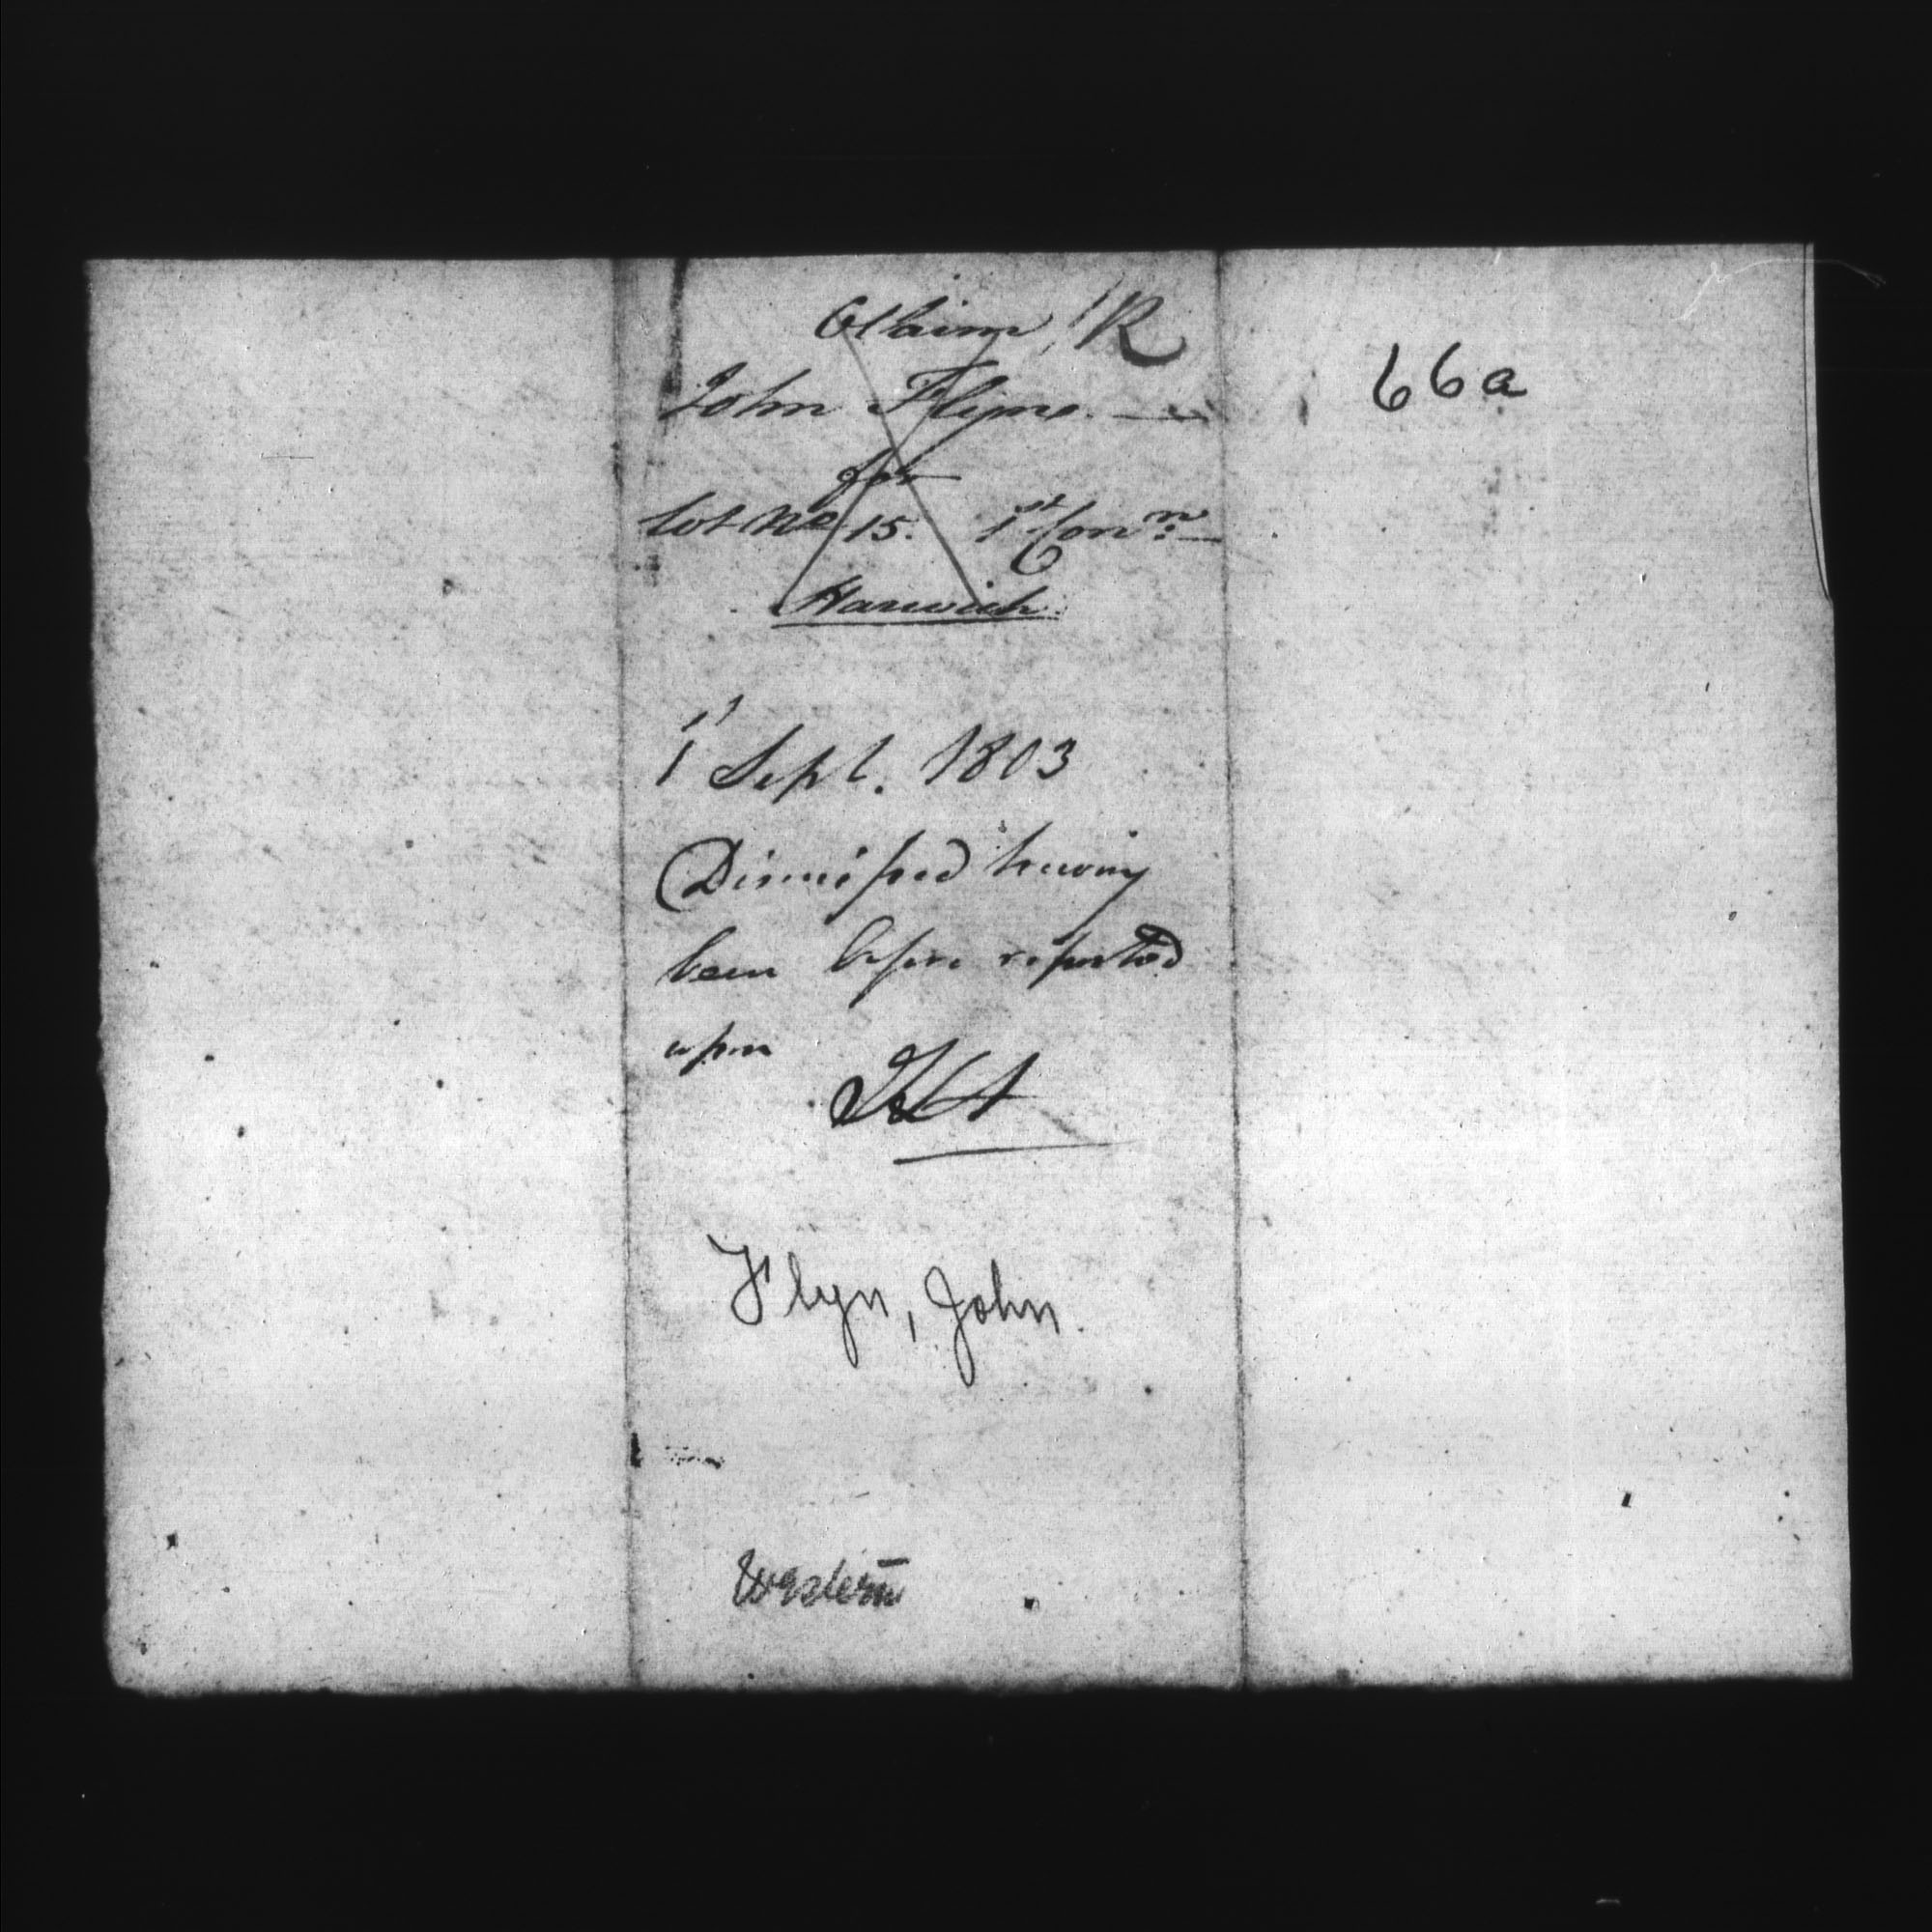 Claim, R
John Flynn.
for
Lot No 15. 1st Conn:
Harwich.
66a
1st Sept. 1803
Dismissed having
been before reported
upon
Flyn, John.
Western